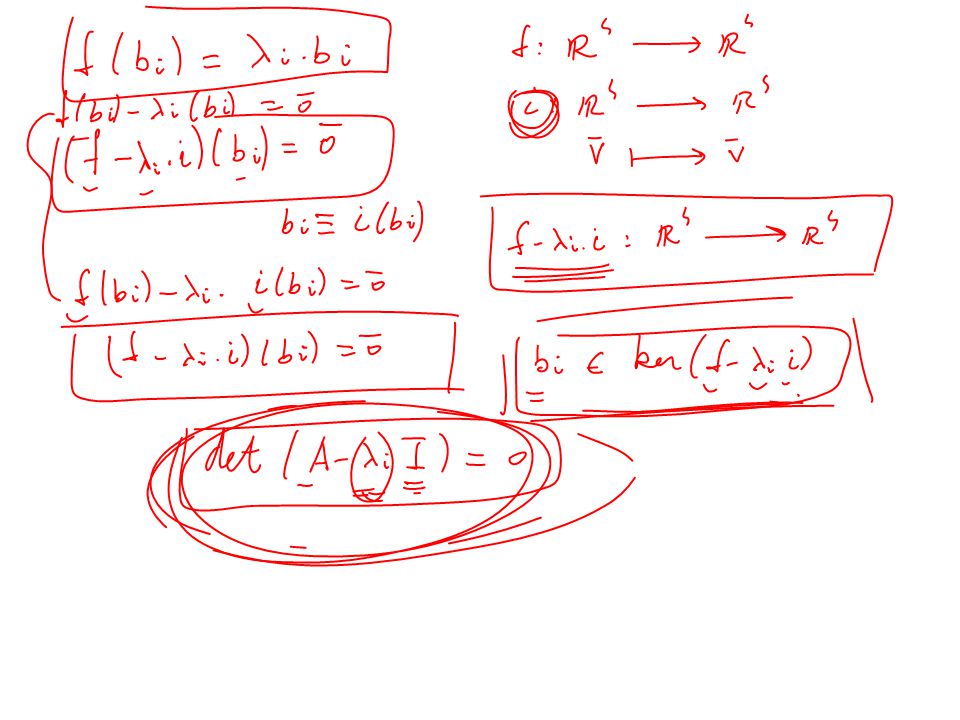 f(bi) = λi · bi
f(bi) - λi(bi) = o̅
(f - λi · i)(bi) = o̅
bi ≡ i(bi)
f(bi) - λi · i(bi) = o̅
(f - λi · i)(bi) = o̅
f: ℝ⁵ ⟶ ℝ⁵
i ℝ⁵ ⟶ ℝ⁵
v̅ ⟼ v̅
f - λi · i : ℝ⁵ ⟶ ℝ⁵
bi ∈ ker(f - λi i)
det (A - λi I) = 0